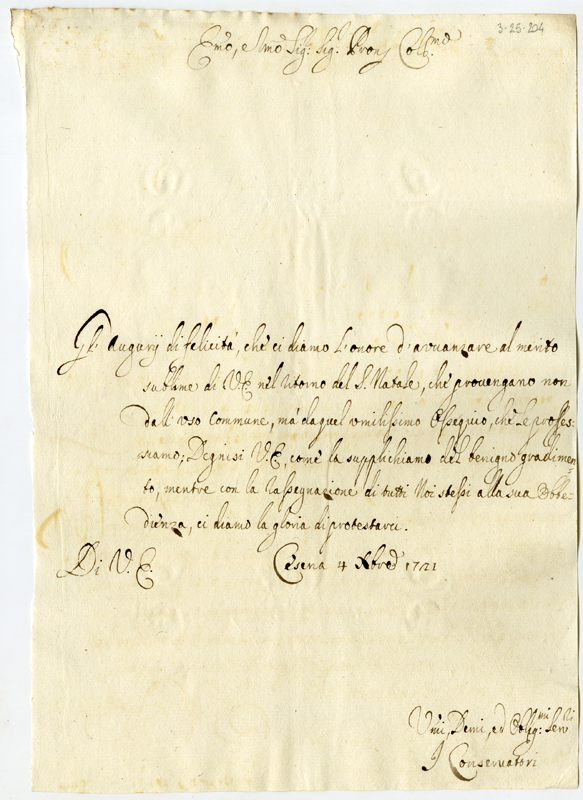 3-25-204
Em̃o, e Rm̃o Sig: Sig: Pron̄ Col:mo
Gl' Augurij di felicità, che ci diamo l'onore d'avuanzare al merito
sublime di V.E. nel ritorno del S. Natale, che provengano non
dall' uso commune, mà da quel umilissimo Ossequio, che Le profes-
siamo; Degnisi V.E., come la supplichiamo del benigno gradimen=
to, mentre con la rassegnazione di tutti Noi stessi alla sua Obbe-
dienza, ci diamo la gloria di protestarci.
Di V. E.
Cesena 4 Xbre 1721
Um̃i, Dem̃i, ed Obligmi Servri
I Conservatori